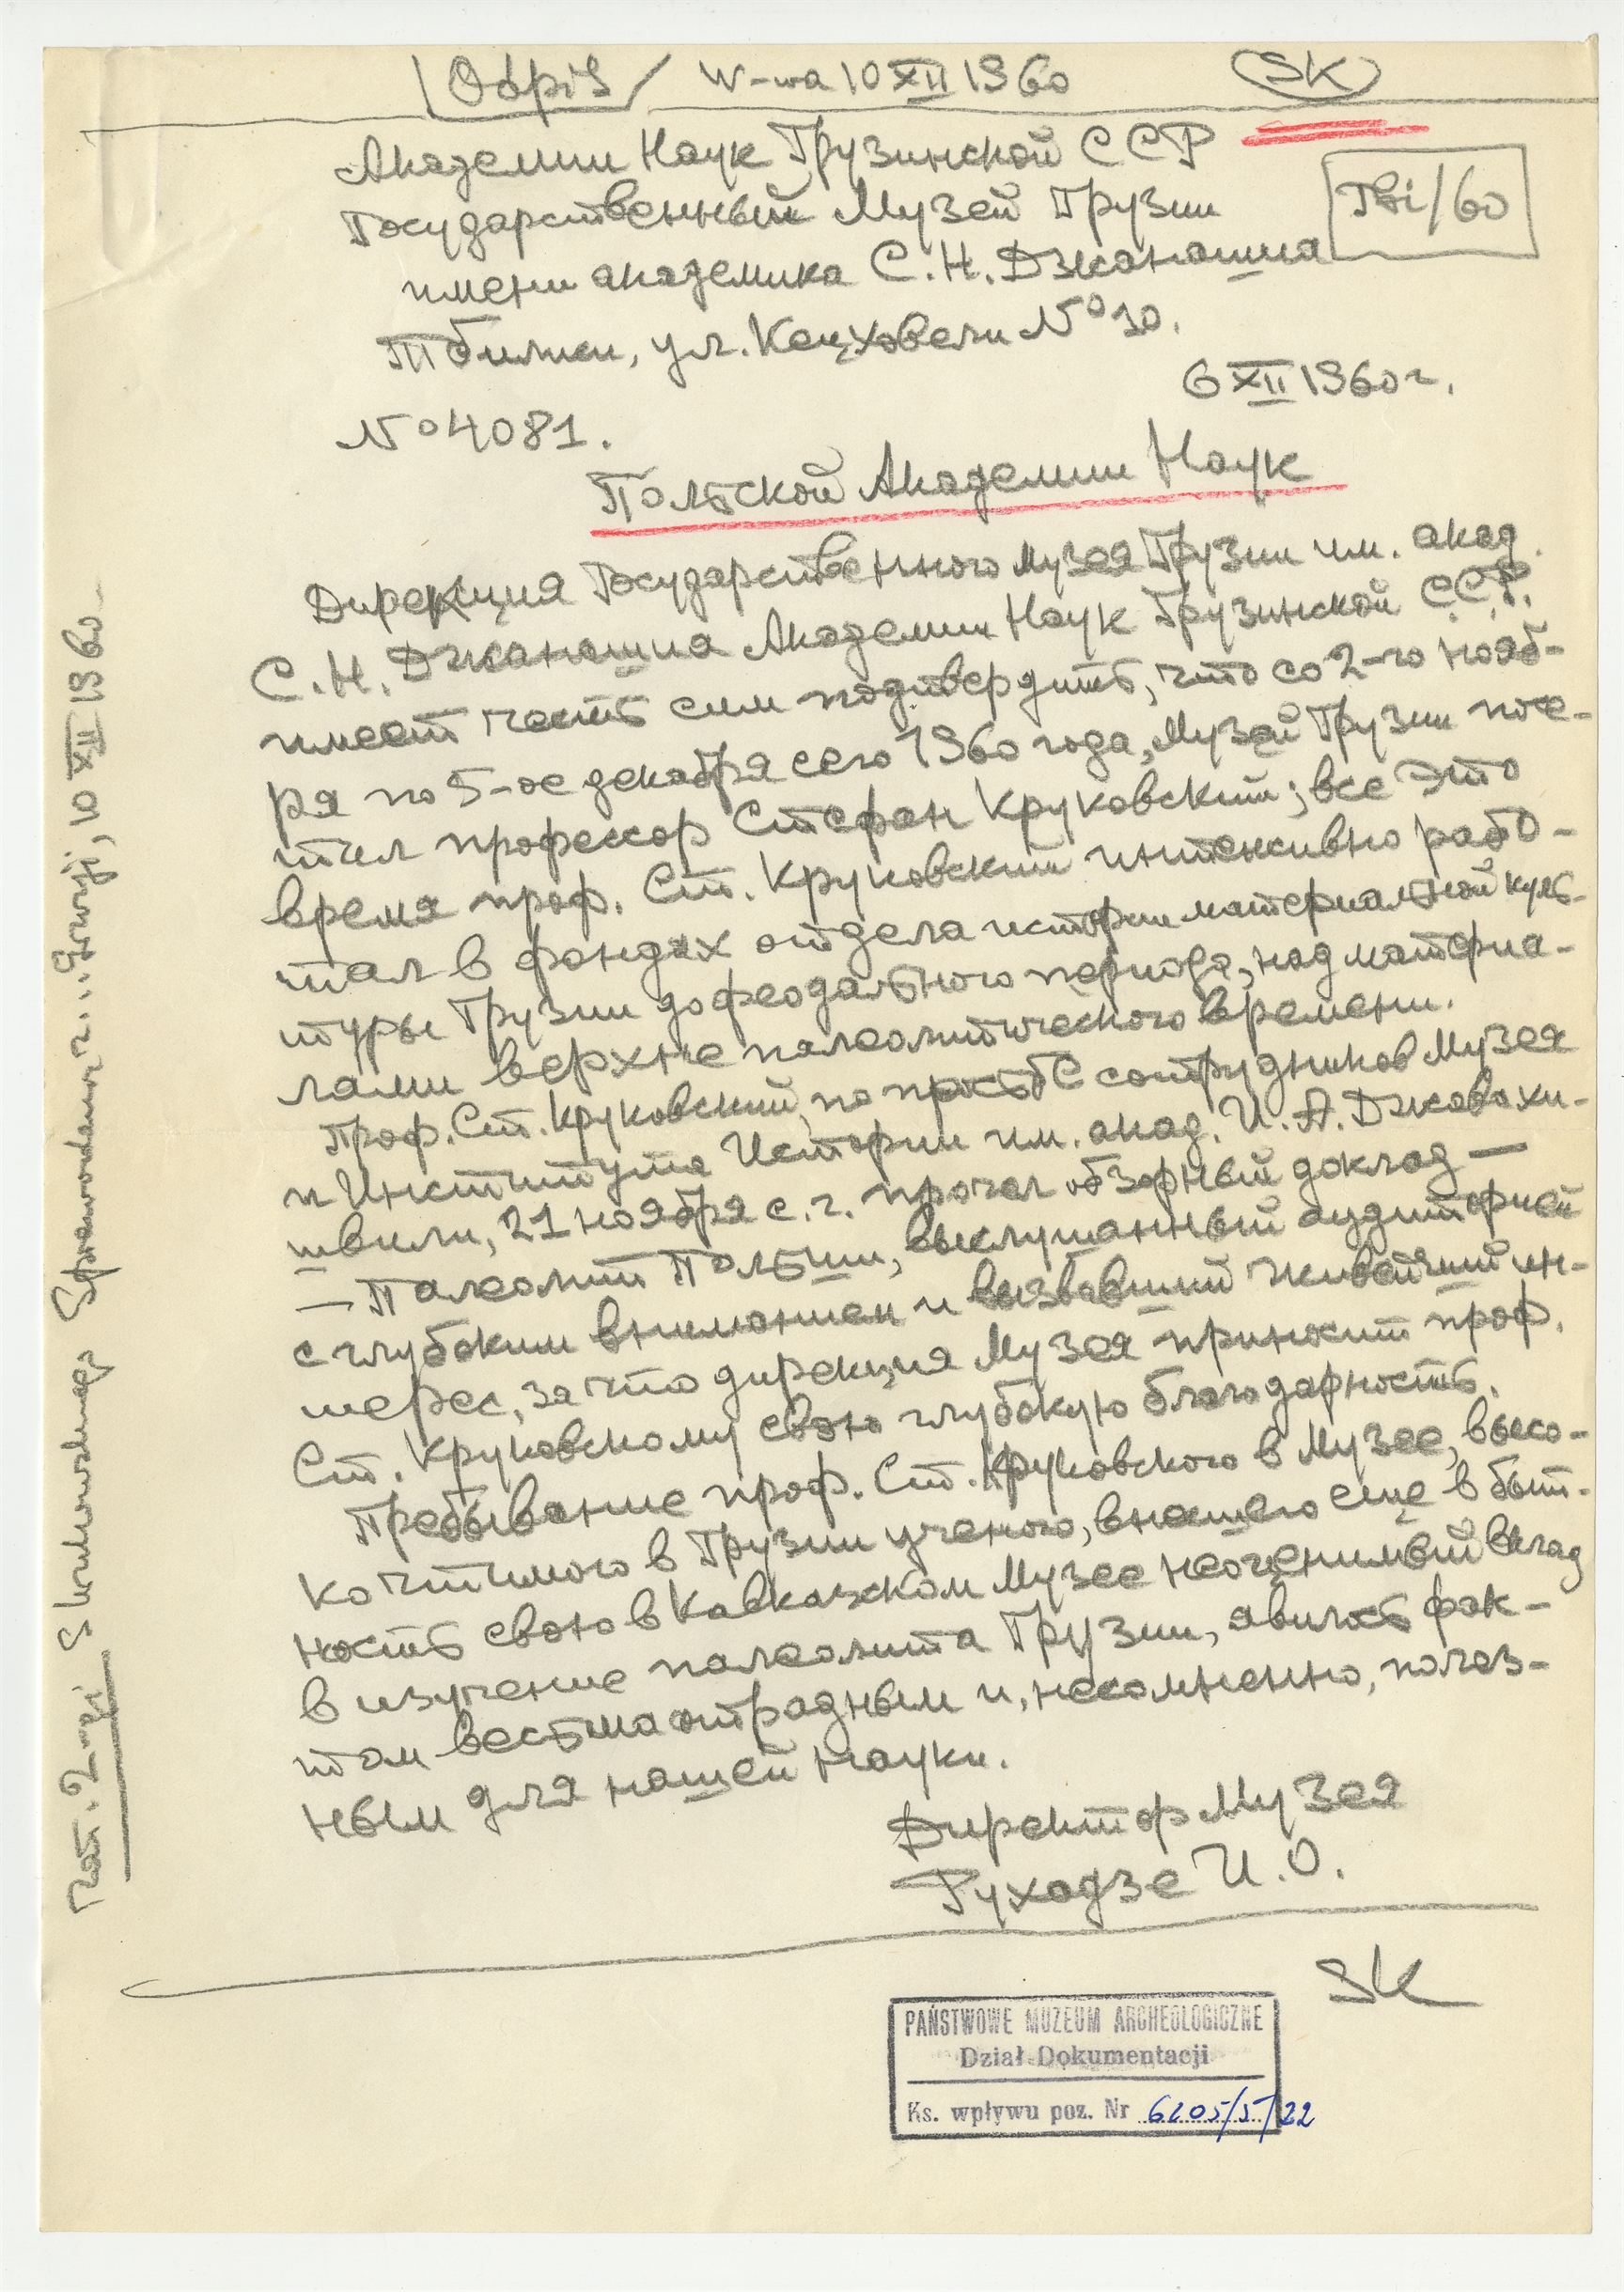 Odpis W-wa 10 XII 1960 SK
Академии Наук Грузинской ССР
Tbi/60
Государственный Музей Грузии
имени академика С.Н. Джанашиа
Тбилиси, ул. Кецховели № 10.
6 XII 1960 г.
№ 4081.
Польской Академии Наук
Дирекция Государственного Музея Грузии им. акад.
С.Н. Джанашиа Академии Наук Грузинской С.С.Р.
имеет честь сим подтвердить, что со 2-го нояб-
ря по 5-ое декабря сего 1960 года, Музей Грузии посе-
тил профессор Стефан Круковский; все это
время проф. Ст. Круковский интенсивно рабо-
тал в фондах отдела истории материальной куль-
туры Грузии дофеодального периода, над материа-
лами верхне палеолитического времени.
Проф. Ст. Круковский, по просьбе сотрудников Музея
и Института Истории им. акад. И.А. Джавахи-
швили, 21 ноября с.г. прочел обзорный доклад —
— Палеолит Польши, выслушанный аудиторией
с глубоким вниманием и вызвавший живейший ин-
терес, за что дирекция Музея приносит проф.
Ст. Круковскому свою глубокую благодарность.
Пребывание проф. Ст. Круковского в Музее, высо-
ко чтимого в Грузии ученого, внесшего еще в быт-
ность свою в Кавказском Музее неоценимый вклад
в изучение палеолита Грузии, явилось фак-
том весьма отрадным и, несомненно, полез-
ным для нашей науки.
Директор Музея
Рухадзе И.О.
SK
PAŃSTWOWE MUZEUM ARCHEOLOGICZNE
Dział Dokumentacji
Ks. wpływu poz. Nr 6205/5/22
S Krukowskiego Sprawozdanie z ... Gruzji, 10 XII 1960